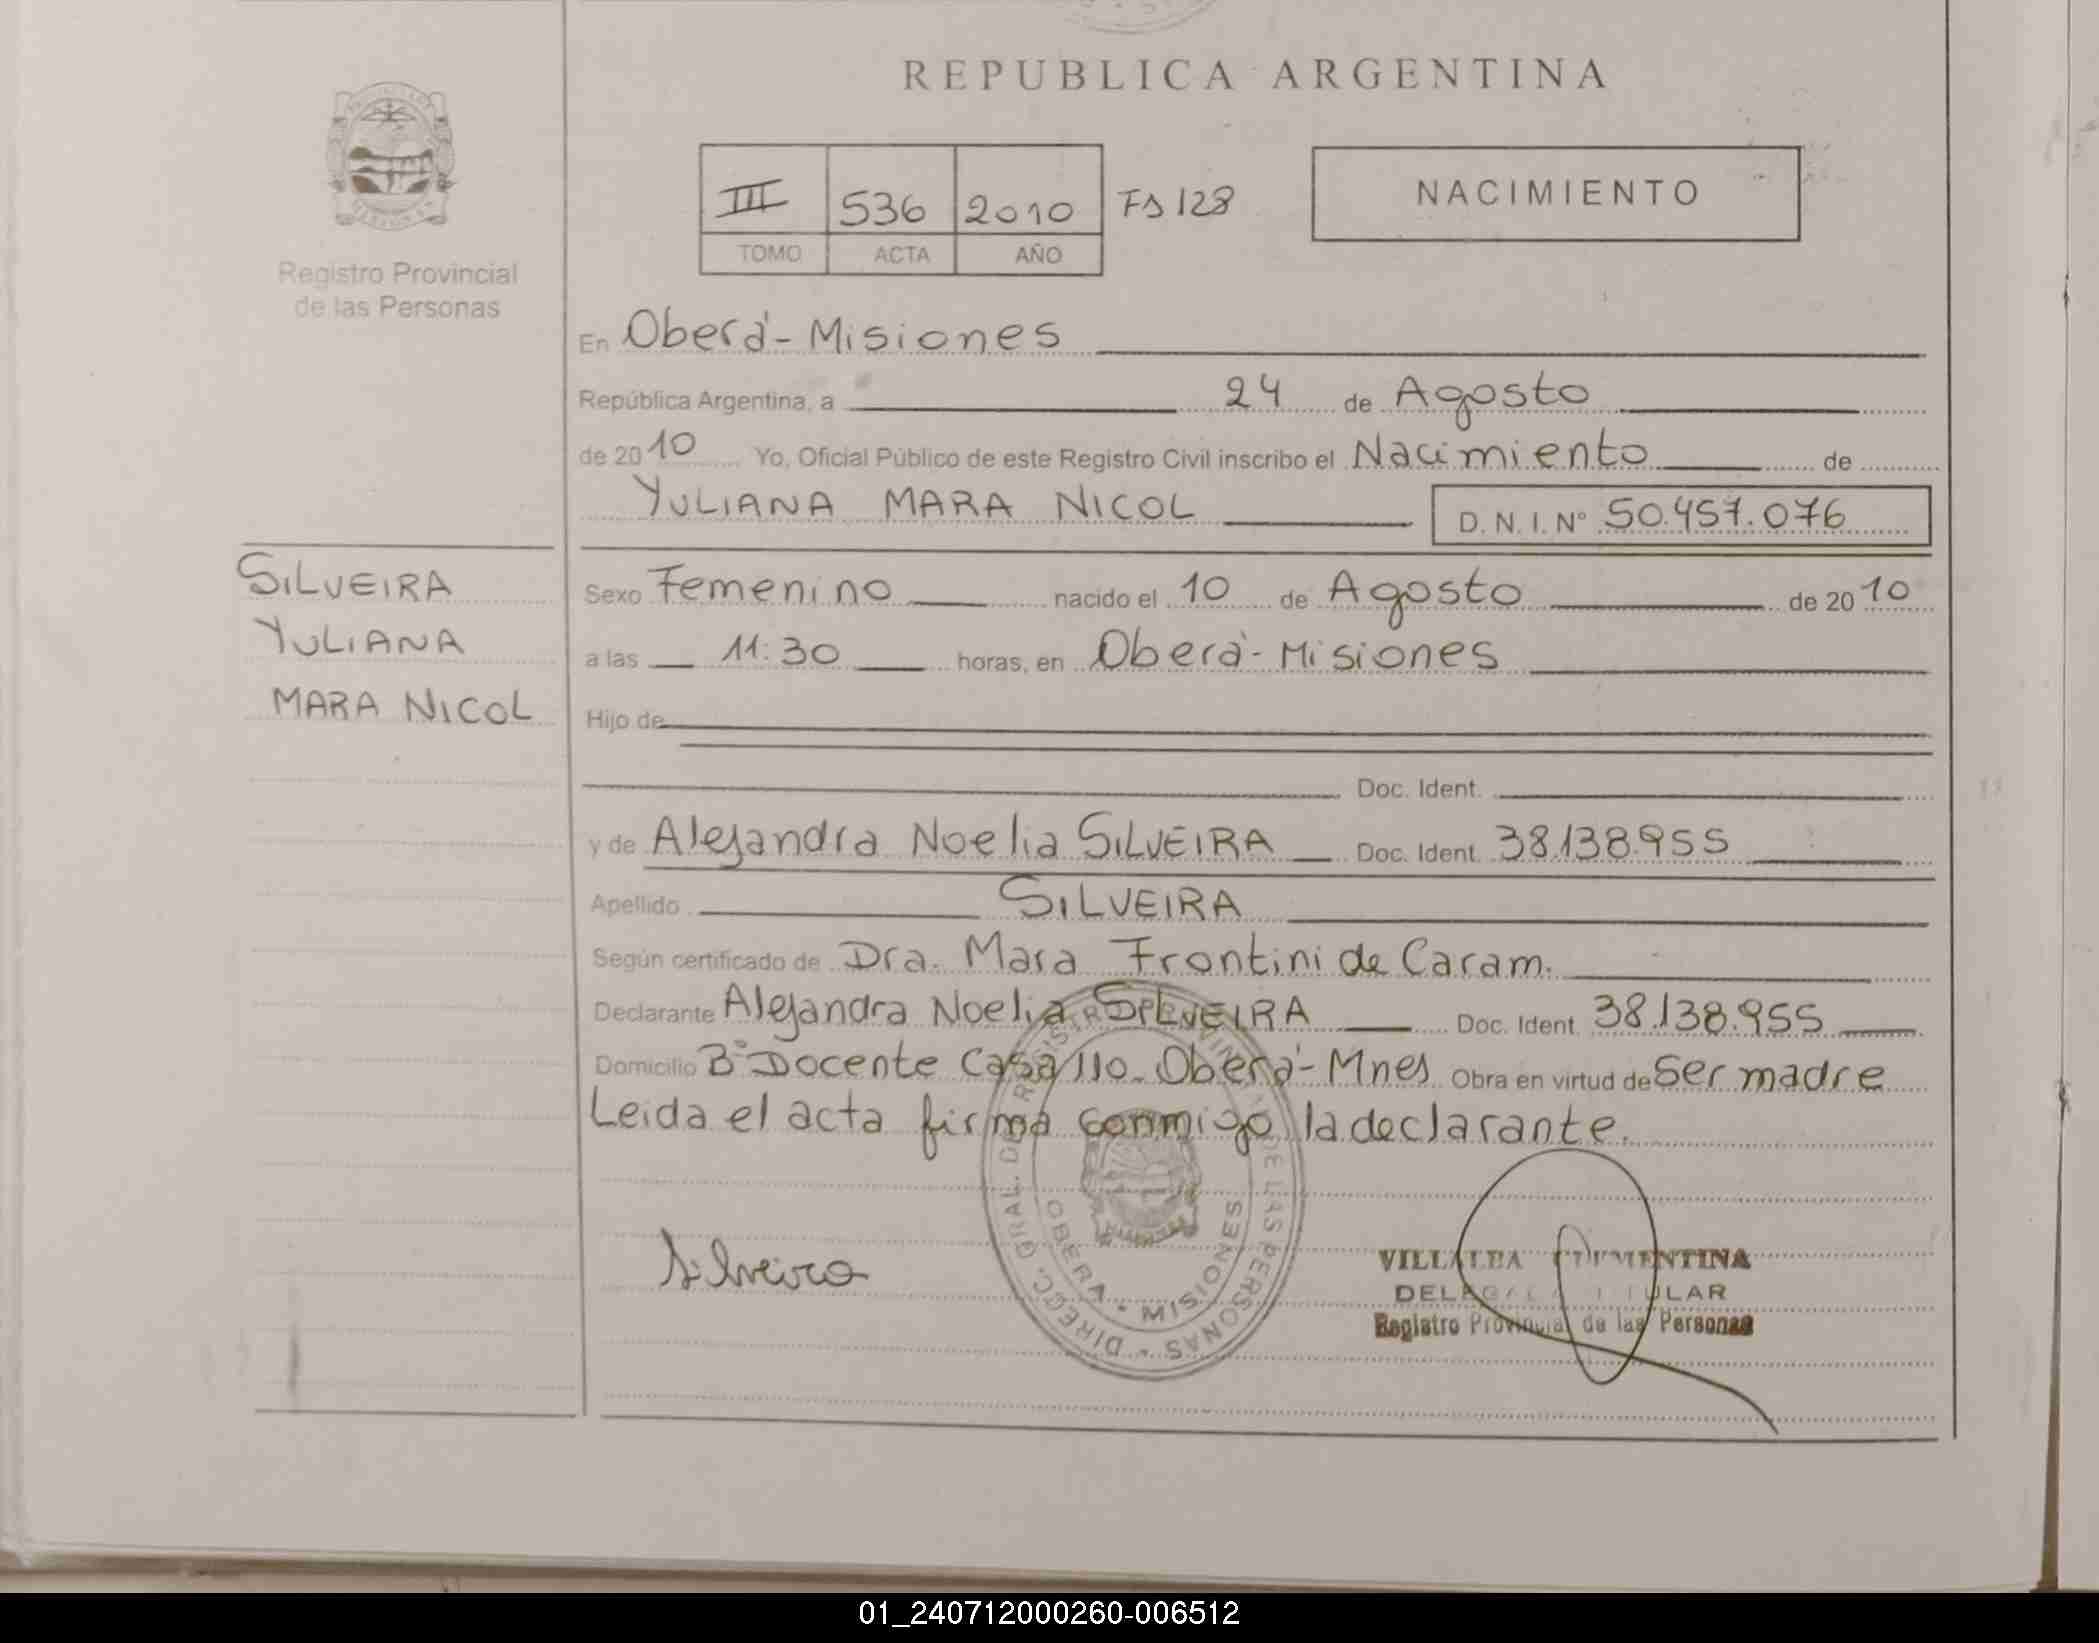 REPUBLICA ARGENTINA
III 536 2010 Fs 128
TOMO ACTA AÑO
NACIMIENTO
Registro Provincial
de las Personas
En Oberá - Misiones
República Argentina, a 24 de Agosto
de 2010 Yo, Oficial Público de este Registro Civil inscribo el Nacimiento de
YULIANA MARA NICOL D. N. I. N° 50.457.076
SILVEIRA
YULIANA
MARA NICOL
Sexo Femenino nacido el 10 de Agosto de 2010
a las 11:30 horas, en Oberá - Misiones
Hijo de
Doc. Ident.
y de Alejandra Noelia SILVEIRA Doc. Ident. 38.138.955
Apellido SILVEIRA
Según certificado de Dra. Mara Frontini de Caram.
Declarante Alejandra Noelia SILVEIRA Doc. Ident. 38.138.955
Domicilio B° Docente Casa 110 - Oberá - Mnes Obra en virtud de Ser madre
Leida el acta firma conmigo la declarante.
DIRECC. GRAL. DE REGISTRO PROVINCIAL DE LAS PERSONAS
OBERA - MISIONES
Silveira
VILLALBA CLEMENTINA
DELEGADA TITULAR
Registro Provincial de las Personas
01_240712000260-006512